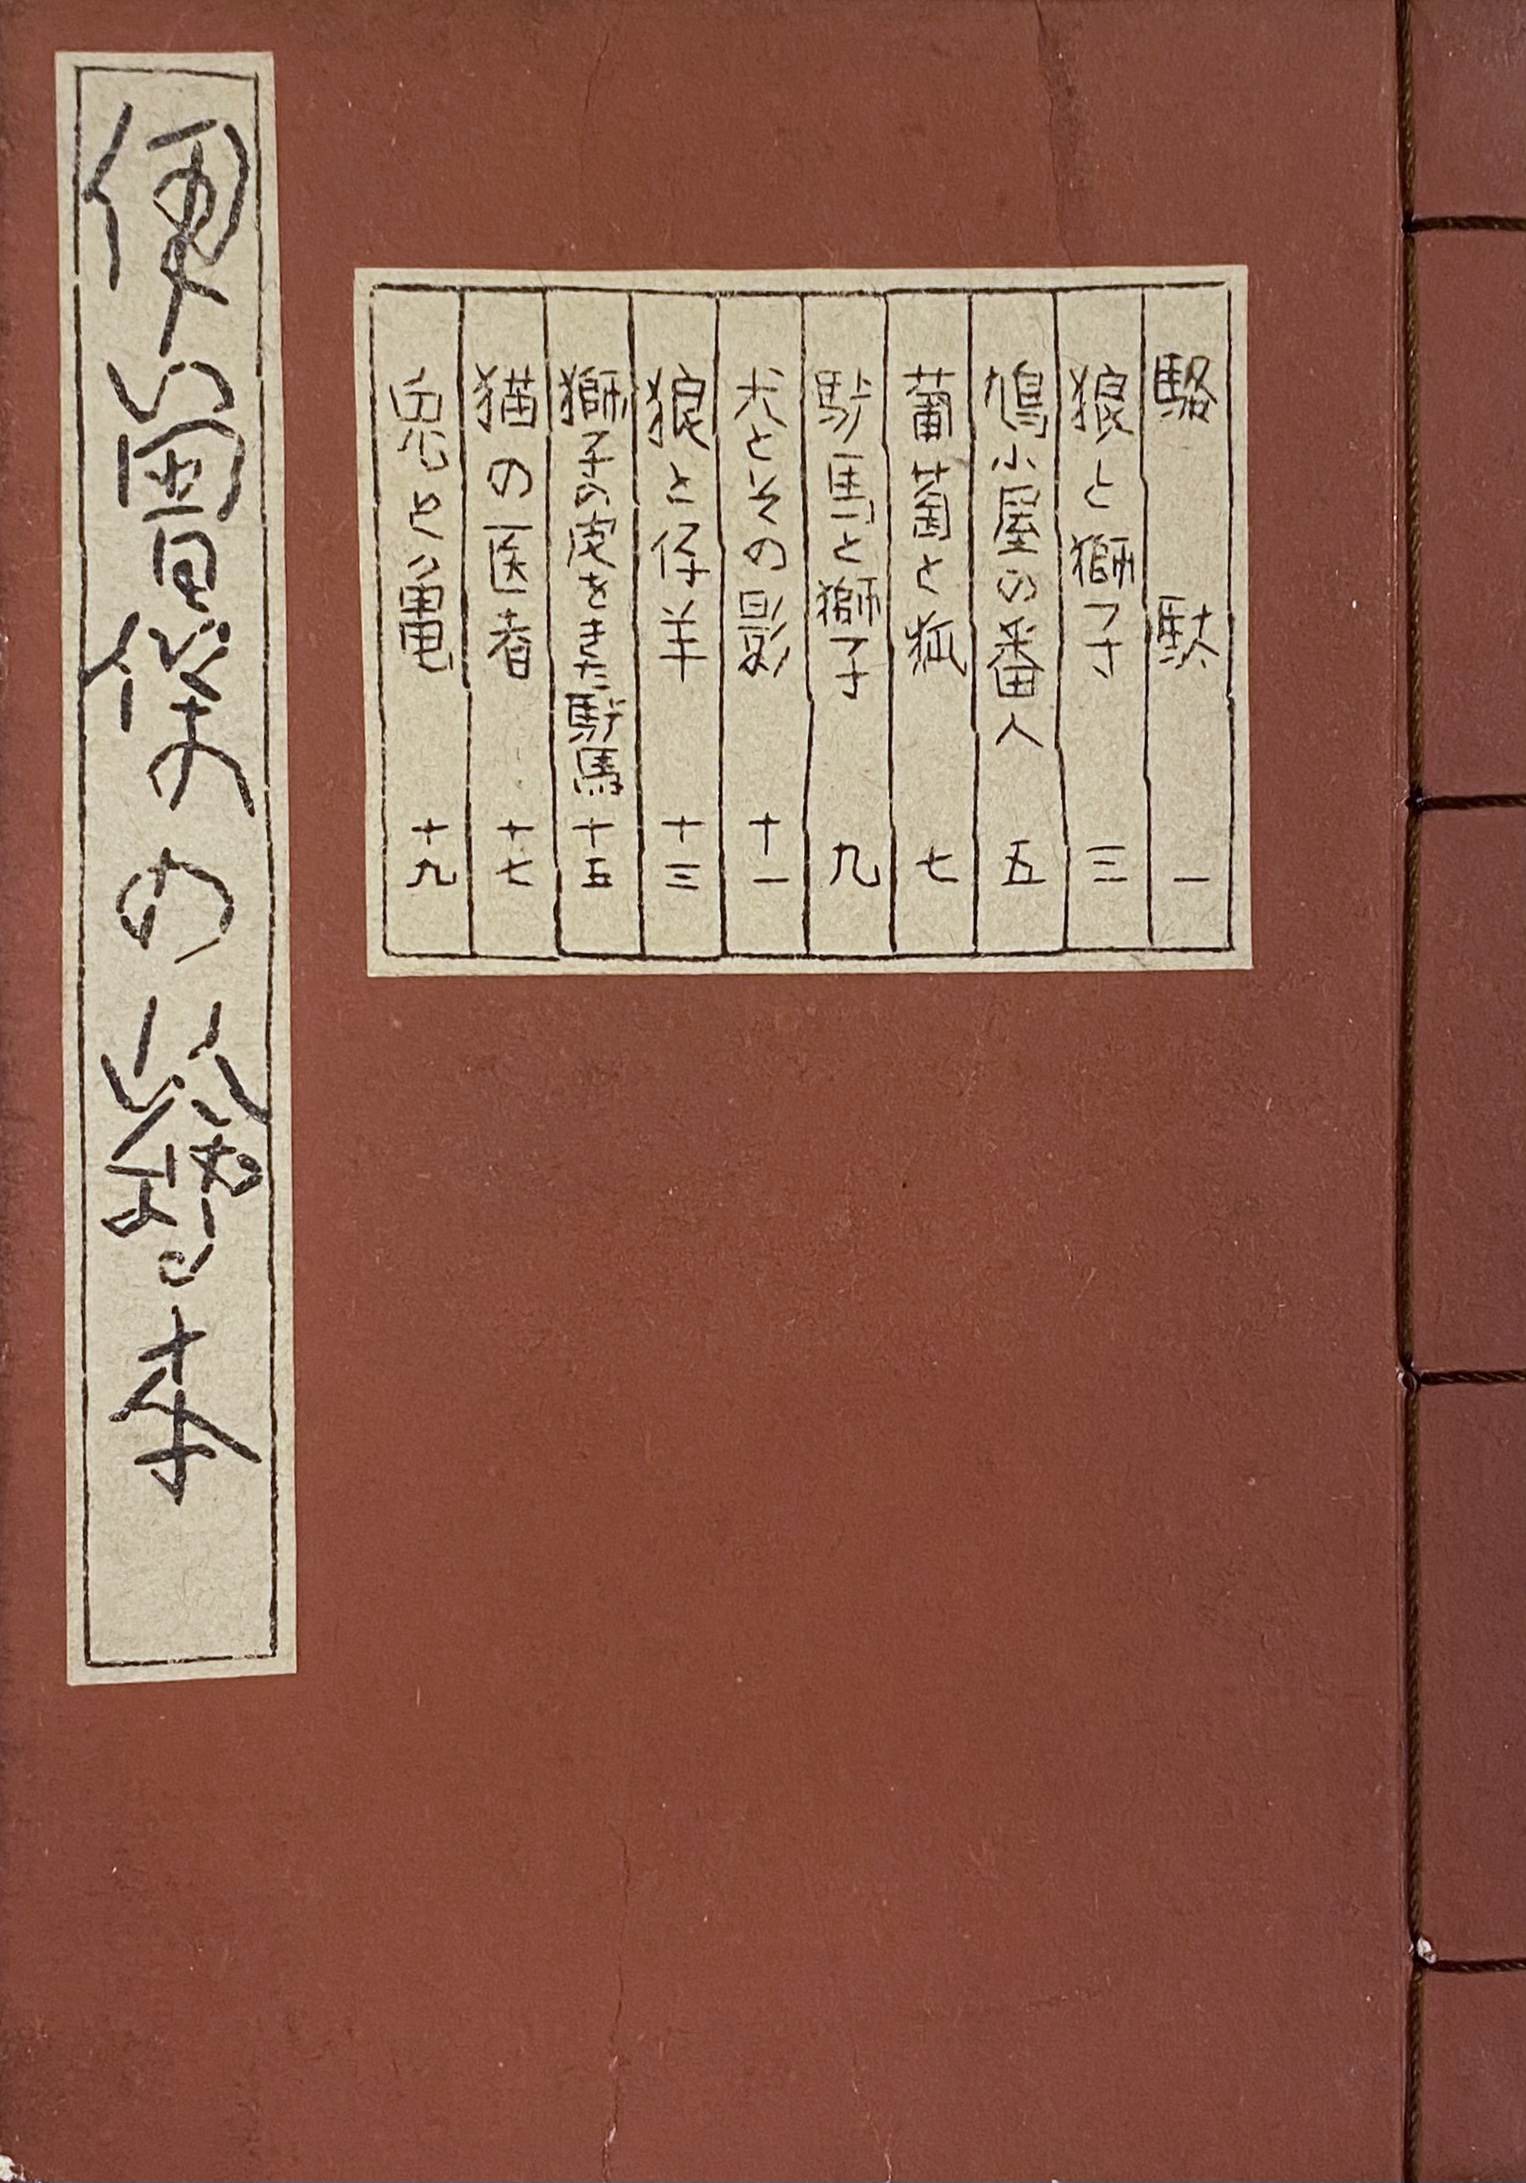 伊曾保の繪本
駱駄 一
狼と獅子 三
鳩小屋の番人 五
葡萄と狐 七
馿馬と獅子 九
犬とその影 十一
狼と仔羊 十三
獅子の皮をきた馿馬 十五
猫の医者 十七
兎と亀 十九